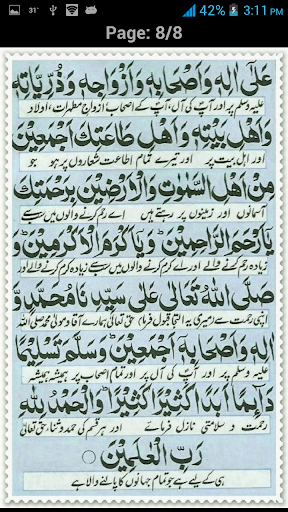 31° 42% 3:11 PM
Page: 8/8
عَلٰٓى اٰلِهٖ وَاَصْحَابِهٖ وَاَزْوَاجِهٖ وَذُرِّيَّاتِهٖ
علیہ وسلم پر اور آپ کی آل، آپ کے اصحاب ازواج مطہرات، اولاد
وَاَهْلِ بَيْتِهٖ وَاَهْلِ طَاعَتِكَ اَجْمَعِيْنَ
اور اہل بیت پر اور تیرے تمام اطاعت شعاروں پر ہو جو
مِنْ اَهْلِ السَّمٰوٰتِ وَالْاَرَضِيْنَ بِرَحْمَتِكَ
آسمانوں اور زمینوں پر رہتے ہیں اے رحم کرنے والوں میں سب سے
يَآ اَرْحَمَ الرَّاحِمِيْنَ وَيَآ اَكْرَمَ الْاَكْرَمِيْنَ وَ
زیادہ رحم کرنے والے اور اے کرم کرنے والوں میں سب سے زیادہ کرم کرنے والے اور
صَلَّى اللّٰهُ تَعَالٰى عَلٰى سَيِّدِنَا مُحَمَّدٍ وَّ
اپنی رحمت سے (میری یہ التجا قبول فرما) حق تعالیٰ ہمارے آقا و مولیٰ محمد صلی اللہ
اٰلِهٖ وَاَصْحَابِهٖ اَجْمَعِيْنَ وَسَلَّمَ تَسْلِيْمًا
علیہ وسلم پر اور آپ کی آل پر اور تمام اصحاب پر ہمیشہ ہمیشہ
دَآئِمًا اَبَدًا كَثِيْرًا كَثِيْرًا وَالْحَمْدُ لِلّٰهِ
رحمت و سلامتی نازل فرمائے اور ہر قسم کی حمد و ثنا، حق تعالیٰ
رَبِّ الْعٰلَمِيْنَ ○
ہی کے لیے ہے جو تمام جہانوں کا پالنے والا ہے